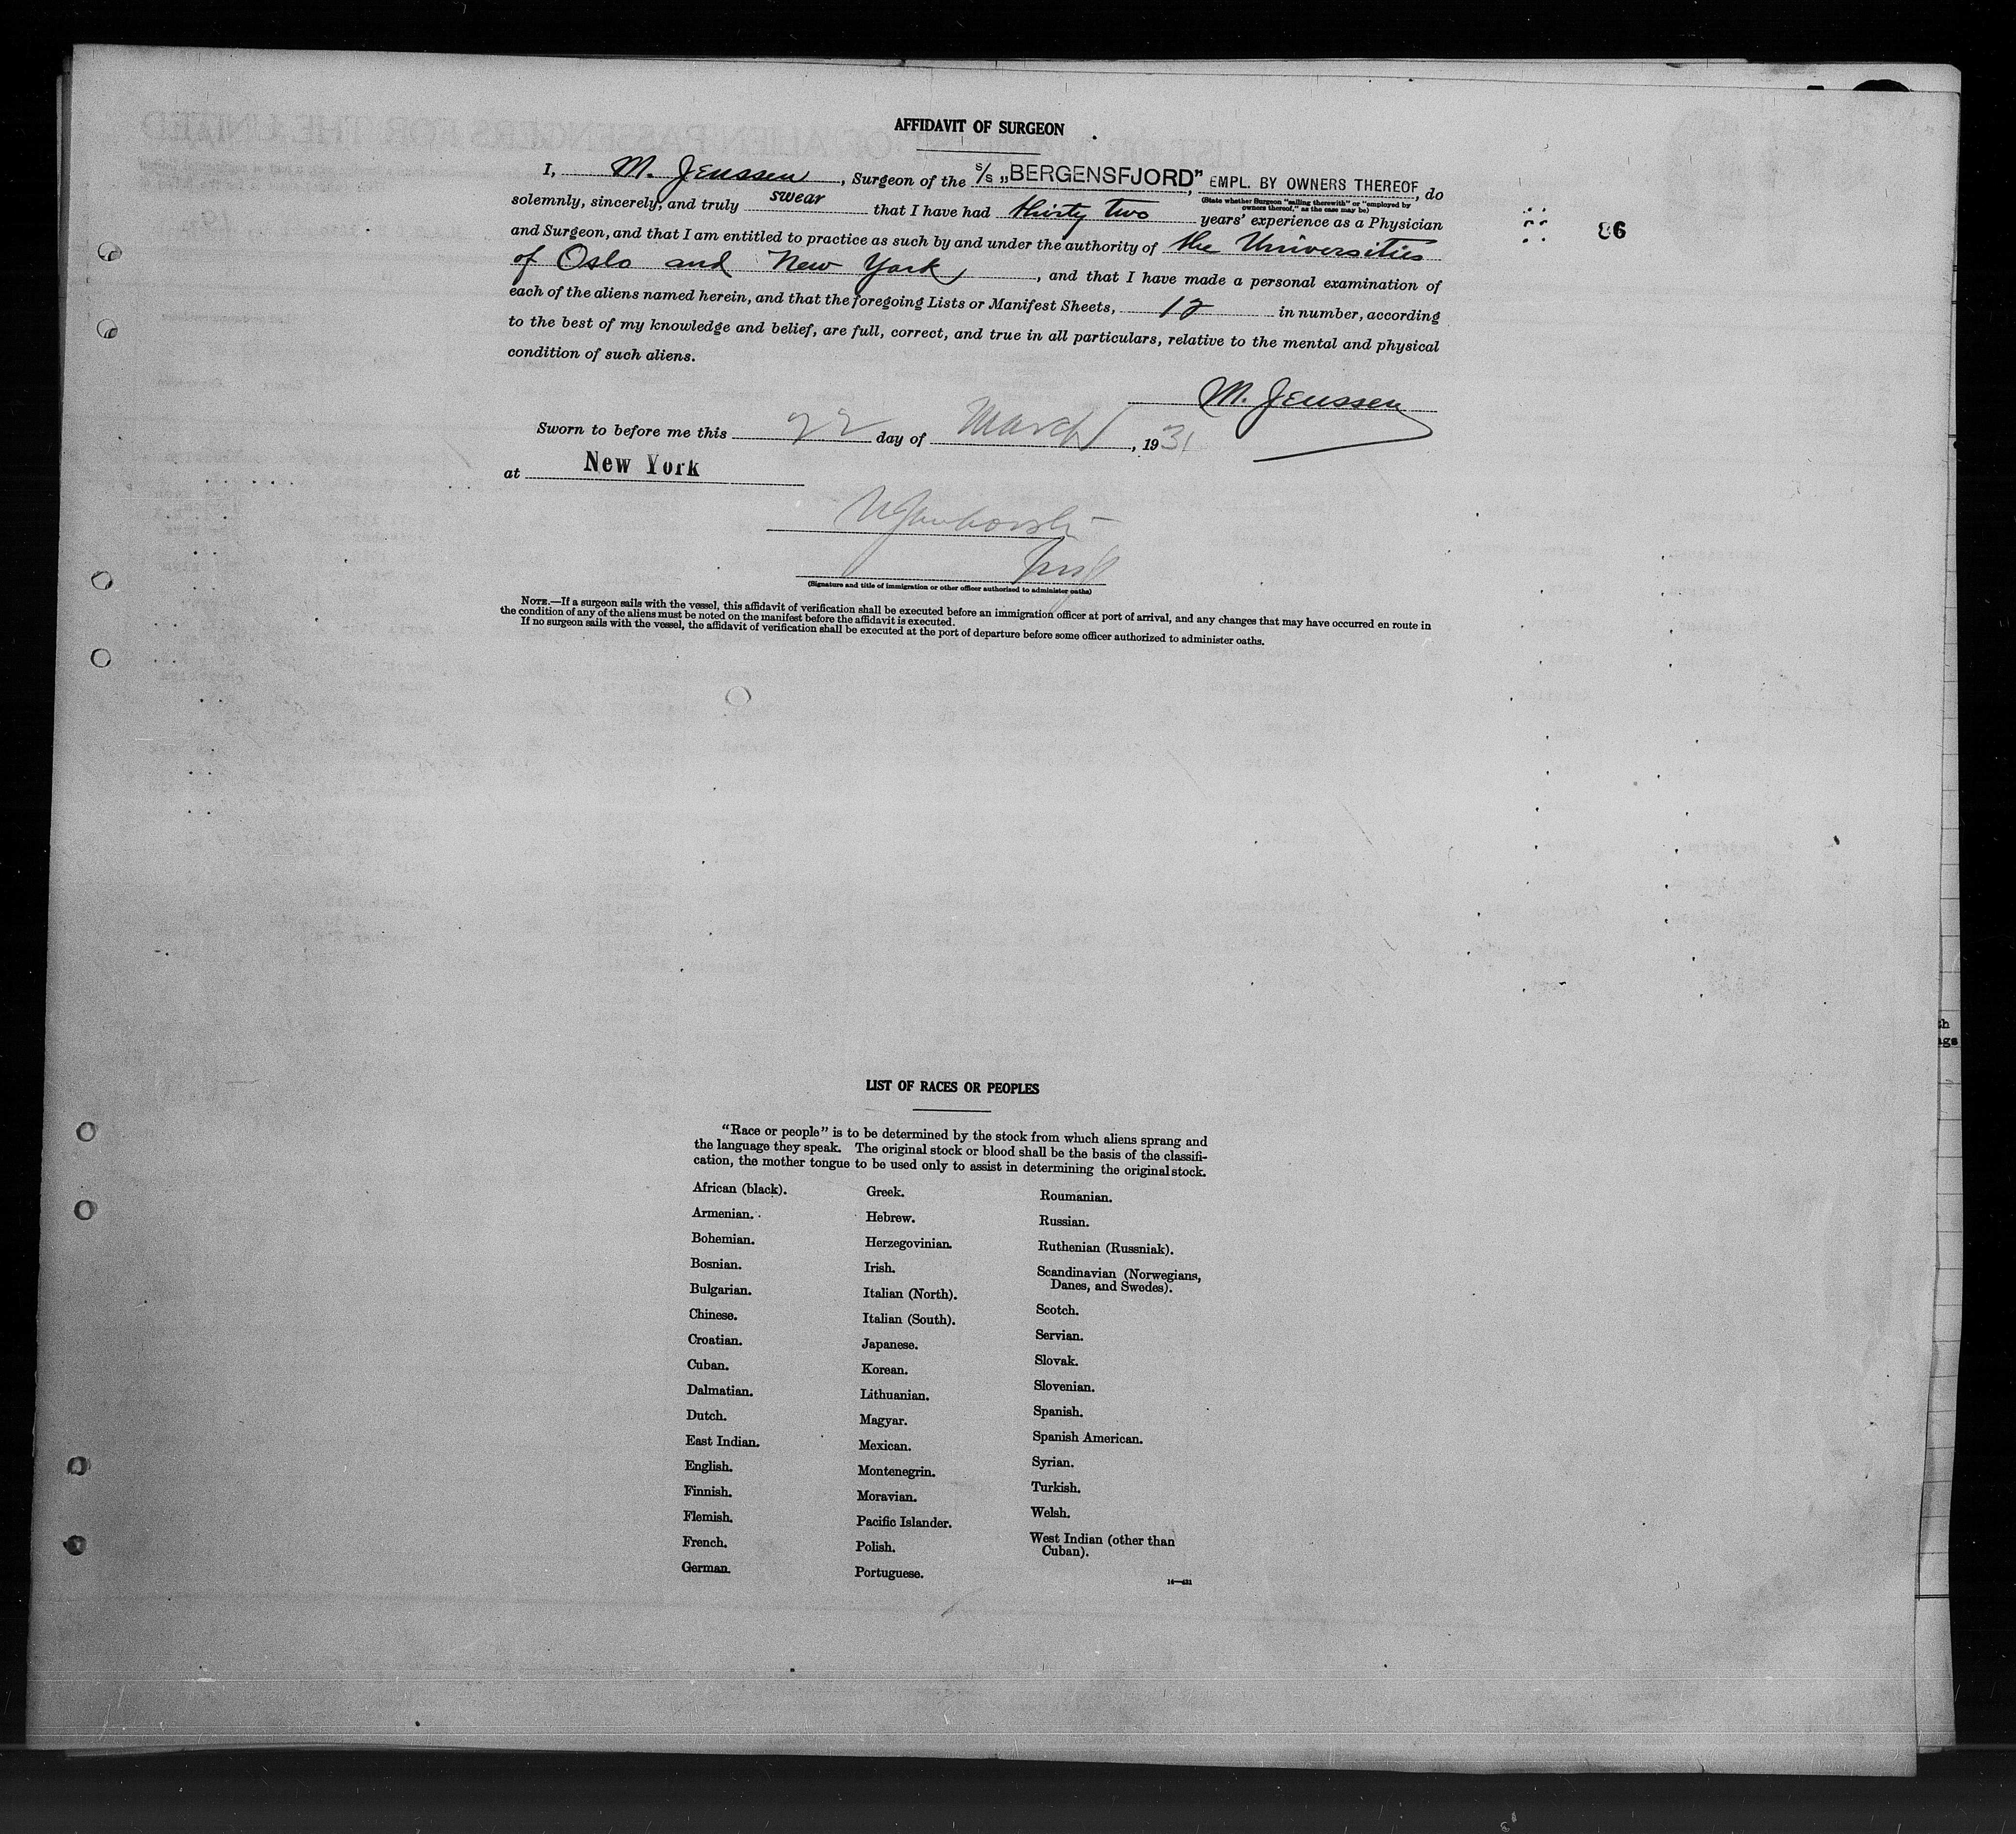 AFFIDAVIT OF SURGEON
I, M. Jenssen, Surgeon of the S/S „BERGENSFJORD”, EMPL. BY OWNERS THEREOF, do
(State whether Surgeon "sailing therewith" or "employed by owners thereof," as the case may be)
solemnly, sincerely, and truly swear that I have had thirty two years' experience as a Physician
86
and Surgeon, and that I am entitled to practice as such by and under the authority of the Universities
of Oslo and New York, and that I have made a personal examination of
each of the aliens named herein, and that the foregoing Lists or Manifest Sheets, 12 in number, according
to the best of my knowledge and belief, are full, correct, and true in all particulars, relative to the mental and physical
condition of such aliens.
M. Jenssen
Sworn to before me this 22 day of March, 1931
at New York
(Signature and title of immigration or other officer authorized to administer oaths)
NOTE.—If a surgeon sails with the vessel, this affidavit of verification shall be executed before an immigration officer at port of arrival, and any changes that may have occurred en route in
the condition of any of the aliens must be noted on the manifest before the affidavit is executed.
If no surgeon sails with the vessel, the affidavit of verification shall be executed at the port of departure before some officer authorized to administer oaths.
LIST OF RACES OR PEOPLES
"Race or people" is to be determined by the stock from which aliens sprang and
the language they speak. The original stock or blood shall be the basis of the classifi-
cation, the mother tongue to be used only to assist in determining the original stock.
African (black).
Armenian.
Bohemian.
Bosnian.
Bulgarian.
Chinese.
Croatian.
Cuban.
Dalmatian.
Dutch.
East Indian.
English.
Finnish.
Flemish.
French.
German.
Greek.
Hebrew.
Herzegovinian.
Irish.
Italian (North).
Italian (South).
Japanese.
Korean.
Lithuanian.
Magyar.
Mexican.
Montenegrin.
Moravian.
Pacific Islander.
Polish.
Portuguese.
Roumanian.
Russian.
Ruthenian (Russniak).
Scandinavian (Norwegians,
Danes, and Swedes).
Scotch.
Servian.
Slovak.
Slovenian.
Spanish.
Spanish American.
Syrian.
Turkish.
Welsh.
West Indian (other than
Cuban).